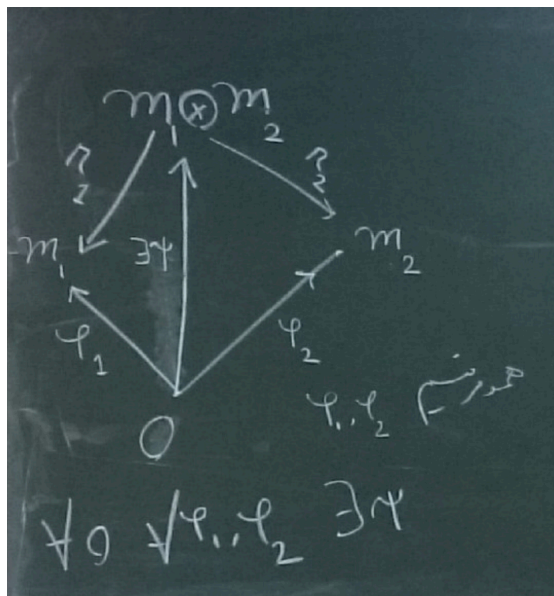 m₁ ⊗ m₂
π₁ π₂
m₁ ∃ψ m₂
φ₁ φ₂
φ₁, φ₂ همورفیسم
O
∀O ∀φ₁, φ₂ ∃ψ